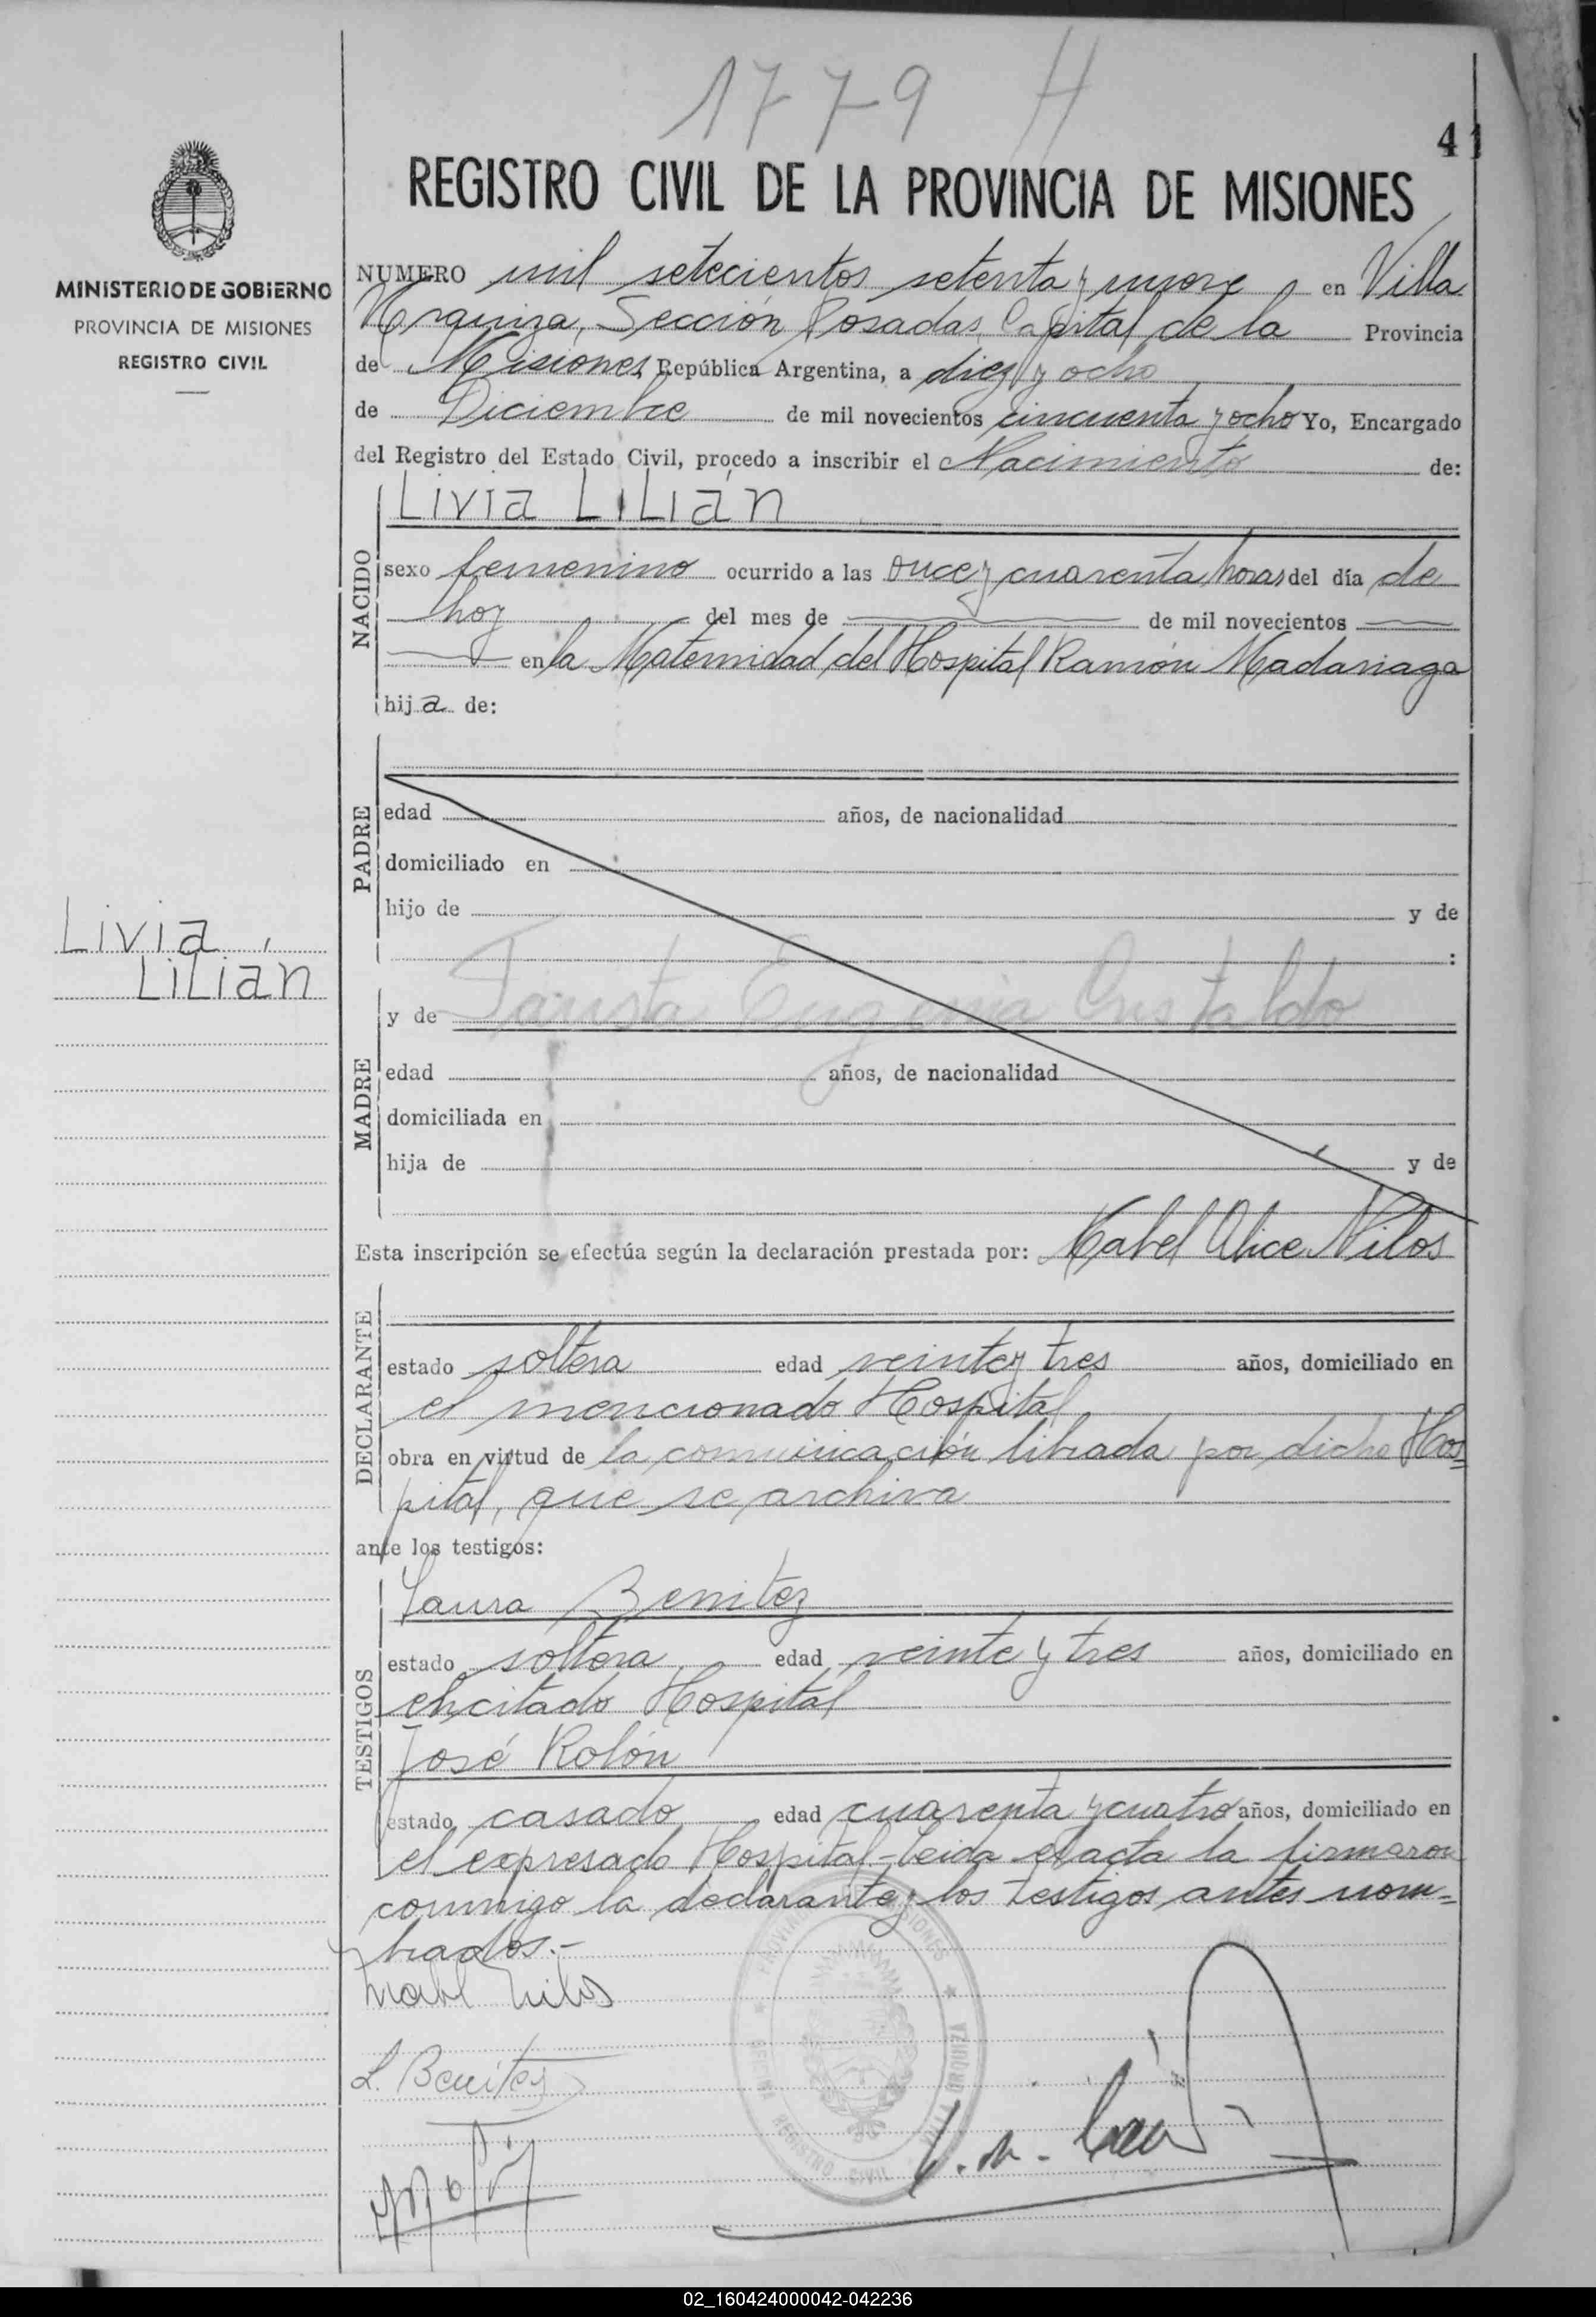 1779 H
41
REGISTRO CIVIL DE LA PROVINCIA DE MISIONES
MINISTERIO DE GOBIERNO
PROVINCIA DE MISIONES
REGISTRO CIVIL
NUMERO mil setecientos setenta y nueve en Villa
Urquiza, Sección Posadas, Capital de la Provincia
de Misiones República Argentina, a diez y ocho
de Diciembre de mil novecientos cincuenta y ocho Yo, Encargado
del Registro del Estado Civil, procedo a inscribir el Nacimiento de:
NACIDO
Livia Lilián
sexo femenino ocurrido a las once y cuarenta horas del día de
hoy del mes de de mil novecientos
en la Maternidad del Hospital Ramón Madariaga
hija de:
PADRE
edad años, de nacionalidad
domiciliado en
hijo de y de
:
Livia
Lilian
MADRE
y de Fausta Eugenia Cristaldo
edad años, de nacionalidad
domiciliada en
hija de y de
Esta inscripción se efectúa según la declaración prestada por: Mabel Alice Nilos
DECLARANTE
estado soltera edad veinte y tres años, domiciliado en
el mencionado Hospital
obra en virtud de la comunicación librada por dicho Hos=
pital, que se archiva
ante los testigos:
TESTIGOS
Laura Benitez
estado soltera edad veinte y tres años, domiciliado en
el citado Hospital
José Rolón
estado casado edad cuarenta y cuatro años, domiciliado en
el expresado Hospital - Leida el acta la firmaron
conmigo la declarante y los testigos antes nom=
brados.-
Mabel Nilos
L. Benitez
PROVINCIA DE MISIONES
VILLA URQUIZA
REGISTRO CIVIL
02_160424000042-042236